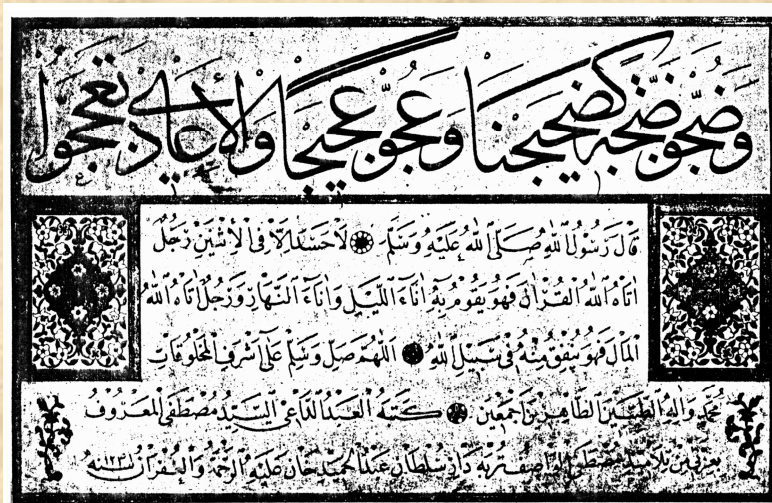 وضجو ضجة كضجيجنا وعجو عجيجا والأعادي تعججوا
قَالَ رَسُولُ اللهِ صَلَّى اللهُ عَلَيْهِ وَسَلَّمَ لَاحَسَدَ اِلَّا فِى الْاِثْنَيْنِ رَجُلٌ
اٰتَاهُ اللهُ الْقُرْاٰنَ فَهُوَ يَقُومُ بِهِ اٰنَاءَ اللَّيْلِ وَاٰنَاءَ النَّهَارِ وَرَجُلٌ اٰتَاهُ اللهُ
الْمَالَ فَهُوَ يُنْفِقُ مِنْهُ فِى سَبِيلِ اللهِ اَللّٰهُمَّ صَلِّ وَسَلِّمْ عَلَى اَشْرَفِ الْمَخْلُوقَاتِ
مُحَمَّدٍ وَاٰلِهِ الطَّيِّبِينَ الطَّاهِرِينَ اَجْمَعِينَ كَتَبَهُ الْعَبْدُ الدَّاعِى السَّيِّدُ مُصْطَفَى الْمَعْرُوفُ
مِنْ تَلَامِيذِ مُصْطَفَى الْوَاصِفِ تُرْبَه دَارِ سُلْطَان عَبْدُ الْحَمِيدْ خَان عَلَيْهِ الرَّحْمَةُ وَالْغُفْرَانُ